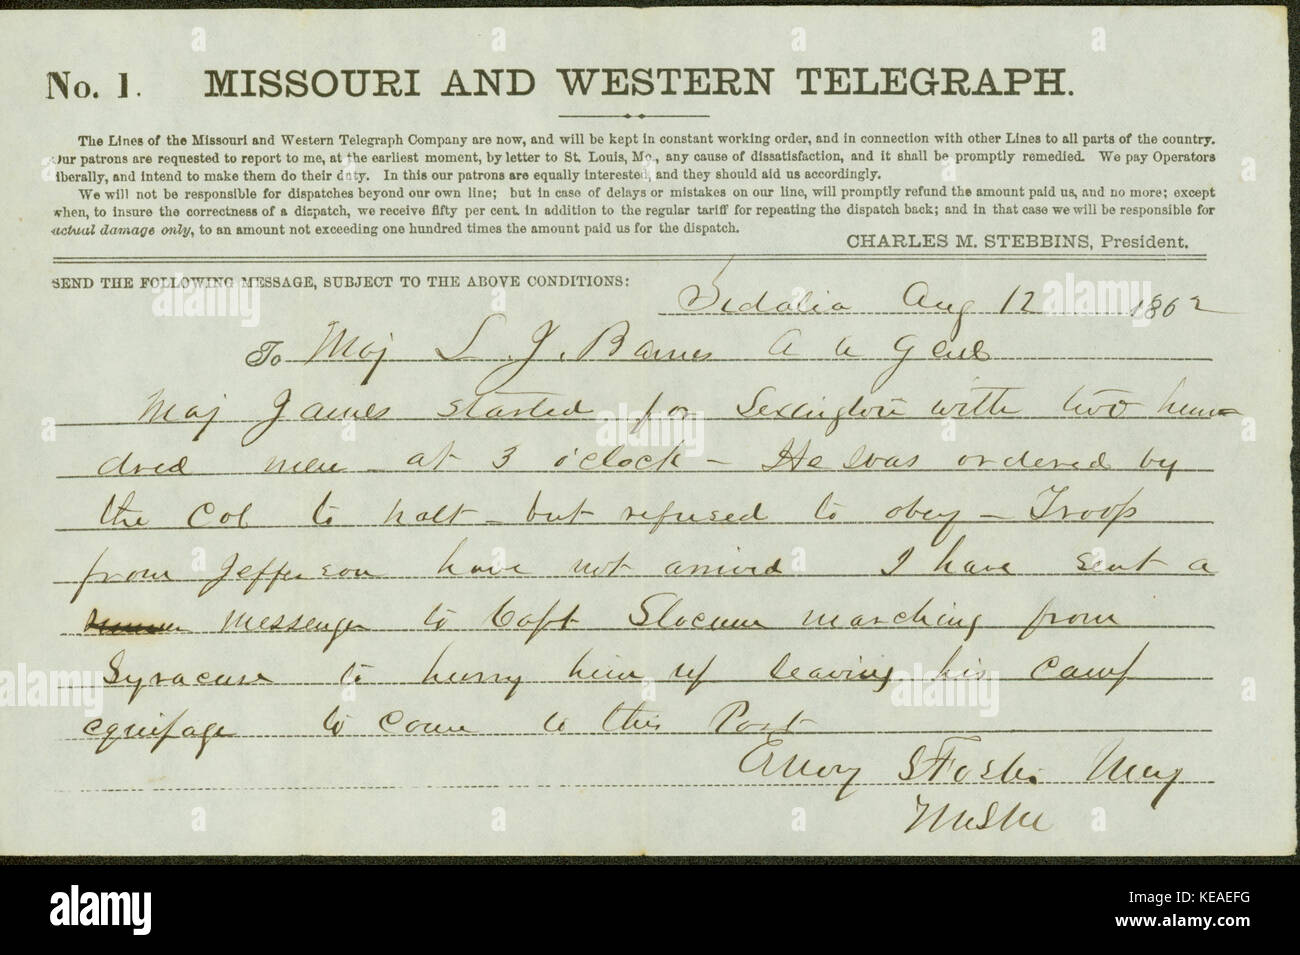 No. 1. MISSOURI AND WESTERN TELEGRAPH.
The Lines of the Missouri and Western Telegraph Company are now, and will be kept in constant working order, and in connection with other Lines to all parts of the country.
Our patrons are requested to report to me, at the earliest moment, by letter to St. Louis, Mo., any cause of dissatisfaction, and it shall be promptly remedied. We pay Operators
liberally, and intend to make them do their duty. In this our patrons are equally interested, and they should aid us accordingly.
We will not be responsible for dispatches beyond our own line; but in case of delays or mistakes on our line, will promptly refund the amount paid us, and no more; except
when, to insure the correctness of a dispatch, we receive fifty per cent. in addition to the regular tariff for repeating the dispatch back; and in that case we will be responsible for
actual damage only, to an amount not exceeding one hundred times the amount paid us for the dispatch.
CHARLES M. STEBBINS, President.
SEND THE FOLLOWING MESSAGE, SUBJECT TO THE ABOVE CONDITIONS:
Sedalia Aug 12 1862
To Maj L J. Barnes A A Genl
Maj James started for Lexington with two hun-
dred men - at 3 o'clock - He was ordered by
the Col to halt - but refused to obey - Troops
from Jefferson have not arrived I have sent a
messenger to Capt Slocum marching from
Syracuse to hurry him up leaving his camp
equipage to come to this Post
Emory S Foster Maj
a alamy
alamy
Image ID: KEAEFG
www.alamy.com